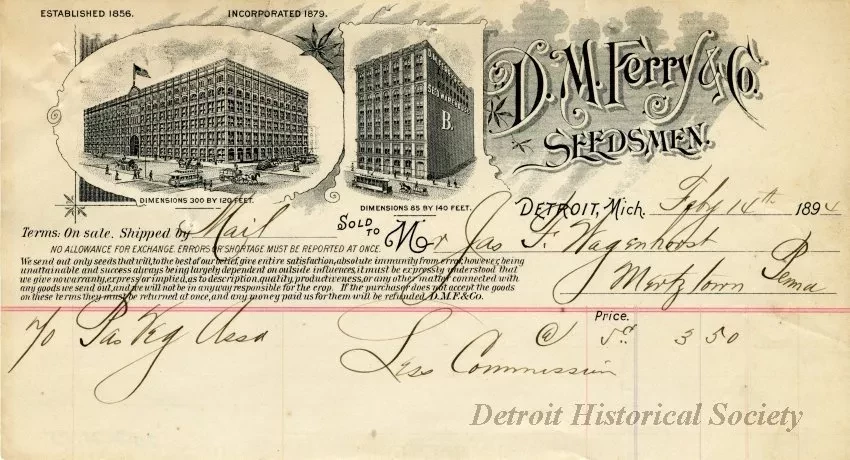 ESTABLISHED 1856.
INCORPORATED 1879.
D. M. Ferry & Co.
SEEDSMEN.
B.
DIMENSIONS 300 BY 120 FEET.
DIMENSIONS 85 BY 140 FEET.
DETROIT, Mich. Feby 14th 1894
Terms: On sale. Shipped by Mail
SOLD TO Mr Jas F. Wagenhorst
NO ALLOWANCE FOR EXCHANGE. ERRORS OR SHORTAGE MUST BE REPORTED AT ONCE.
Mertztown Penna
We send out only seeds that will, to the best of our belief, give entire satisfaction, absolute immunity from error, however, being
unattainable and success always being largely dependent on outside influences, it must be expressly understood that
we give no warranty, express or implied, as to description, quality, productiveness, or any other matter connected with
any goods we send out, and we will not be in any way responsible for the crop. If the purchaser does not accept the goods
on these terms they must be returned at once, and any money paid us for them will be refunded. D.M.F.&Co.
Price.
70 Pas Veg Assd @ 5c 3 50
Less Commission
Detroit Historical Society